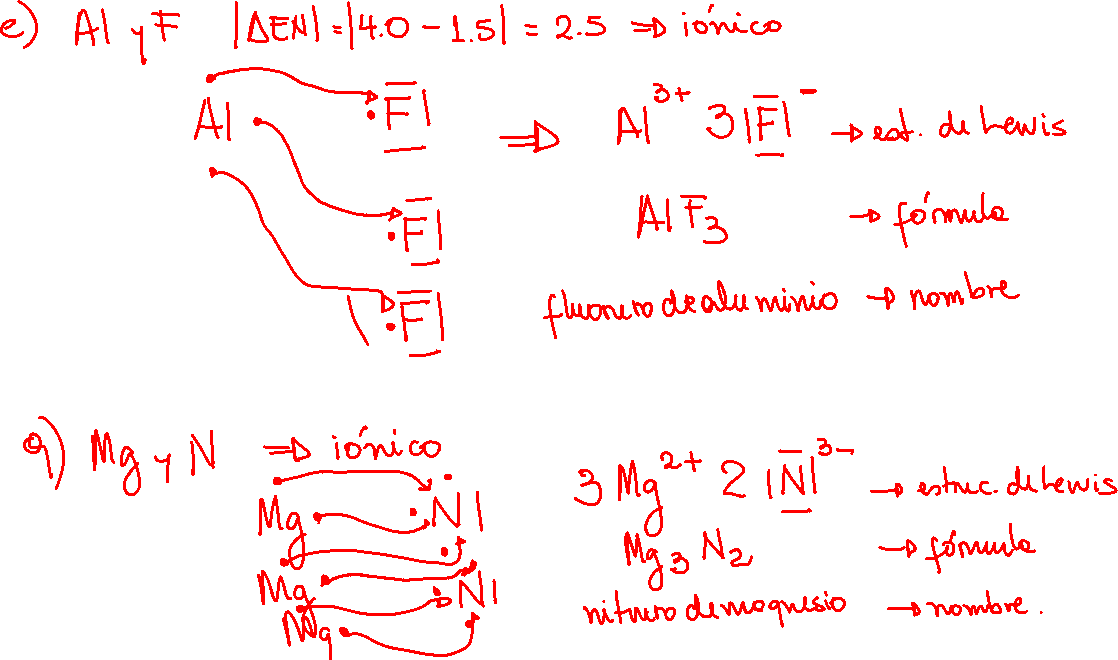 e) Al y F |ΔEN| = |4.0 - 1.5| = 2.5 ⇒ iónico
Al F ⇒ Al3+ 3 |F|- → est. de Lewis
F AlF3 → fórmula
F fluoruro de aluminio → nombre
q) Mg y N ⇒ iónico
Mg N 3 Mg2+ 2 |N|3- → estruc. de Lewis
Mg3 N2 → fórmula
Mg N nitruro de magnesio → nombre.
Mg